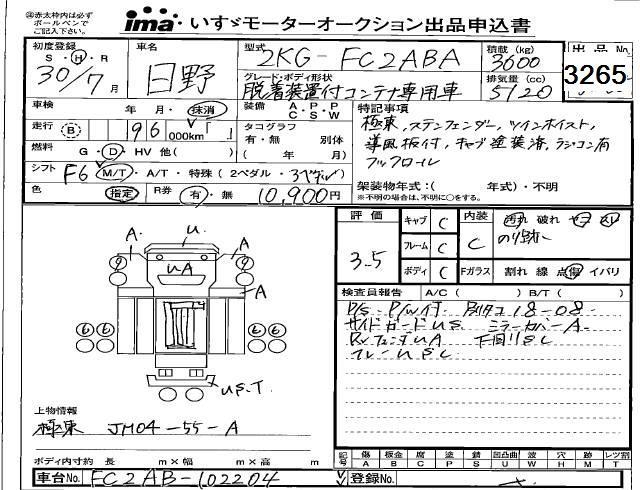 ㊟赤太枠内は必ず
ボールペンで
ご記入ください。
ima いすゞモーターオークション出品申込書
初度登録 S・H・R 30/7月
車名 日野
型式 2KG-FC2ABA
積載(kg) 3600
出品No. 3265
グレード・ボディ形状 脱着装置付コンテナ専用車
排気量(cc) 5120
車検 年 月・抹消
装備 A・P・P C・S・W
特記事項
極東,ステンフェンダー,ツインホイスト,
導風板付,キャブ塗装済,ラジコン有
フックロイル
走行 B 96 000km
タコグラフ 有・無 別体
( 年 月)
燃料 G・D・HV 他( )
シフト F6 M/T・A/T・特殊(2ペダル・3ペダル)
架装物年式:( 年式)・不明
※不明の場合は、不明に○をする。
色 指定 R券 有・無 10,900円
評価 3.5
キャブ C
フレーム C
ボディ C
内装 C
破れ
のり跡
Fガラス 割れ 線 点傷 イバリ
検査員報告 A/C( ) B/T( )
P/S P/W付 18-08
サイドガードUS ミラーカバーA
RフェンダUA 下回りSC
フレームSC
A. U. A
UA
A
6 6 6 6
US.T
上物情報
極東 JM04-55-A
ボディ内寸約 長 m×幅 m×高 m
記号 傷 A 板金 B 腐 C 塗 P 錆 S 凹凸曲 U 波 W 穴 H 跡 M レツ割 T
車台No. FC2AB-102204
登録No.